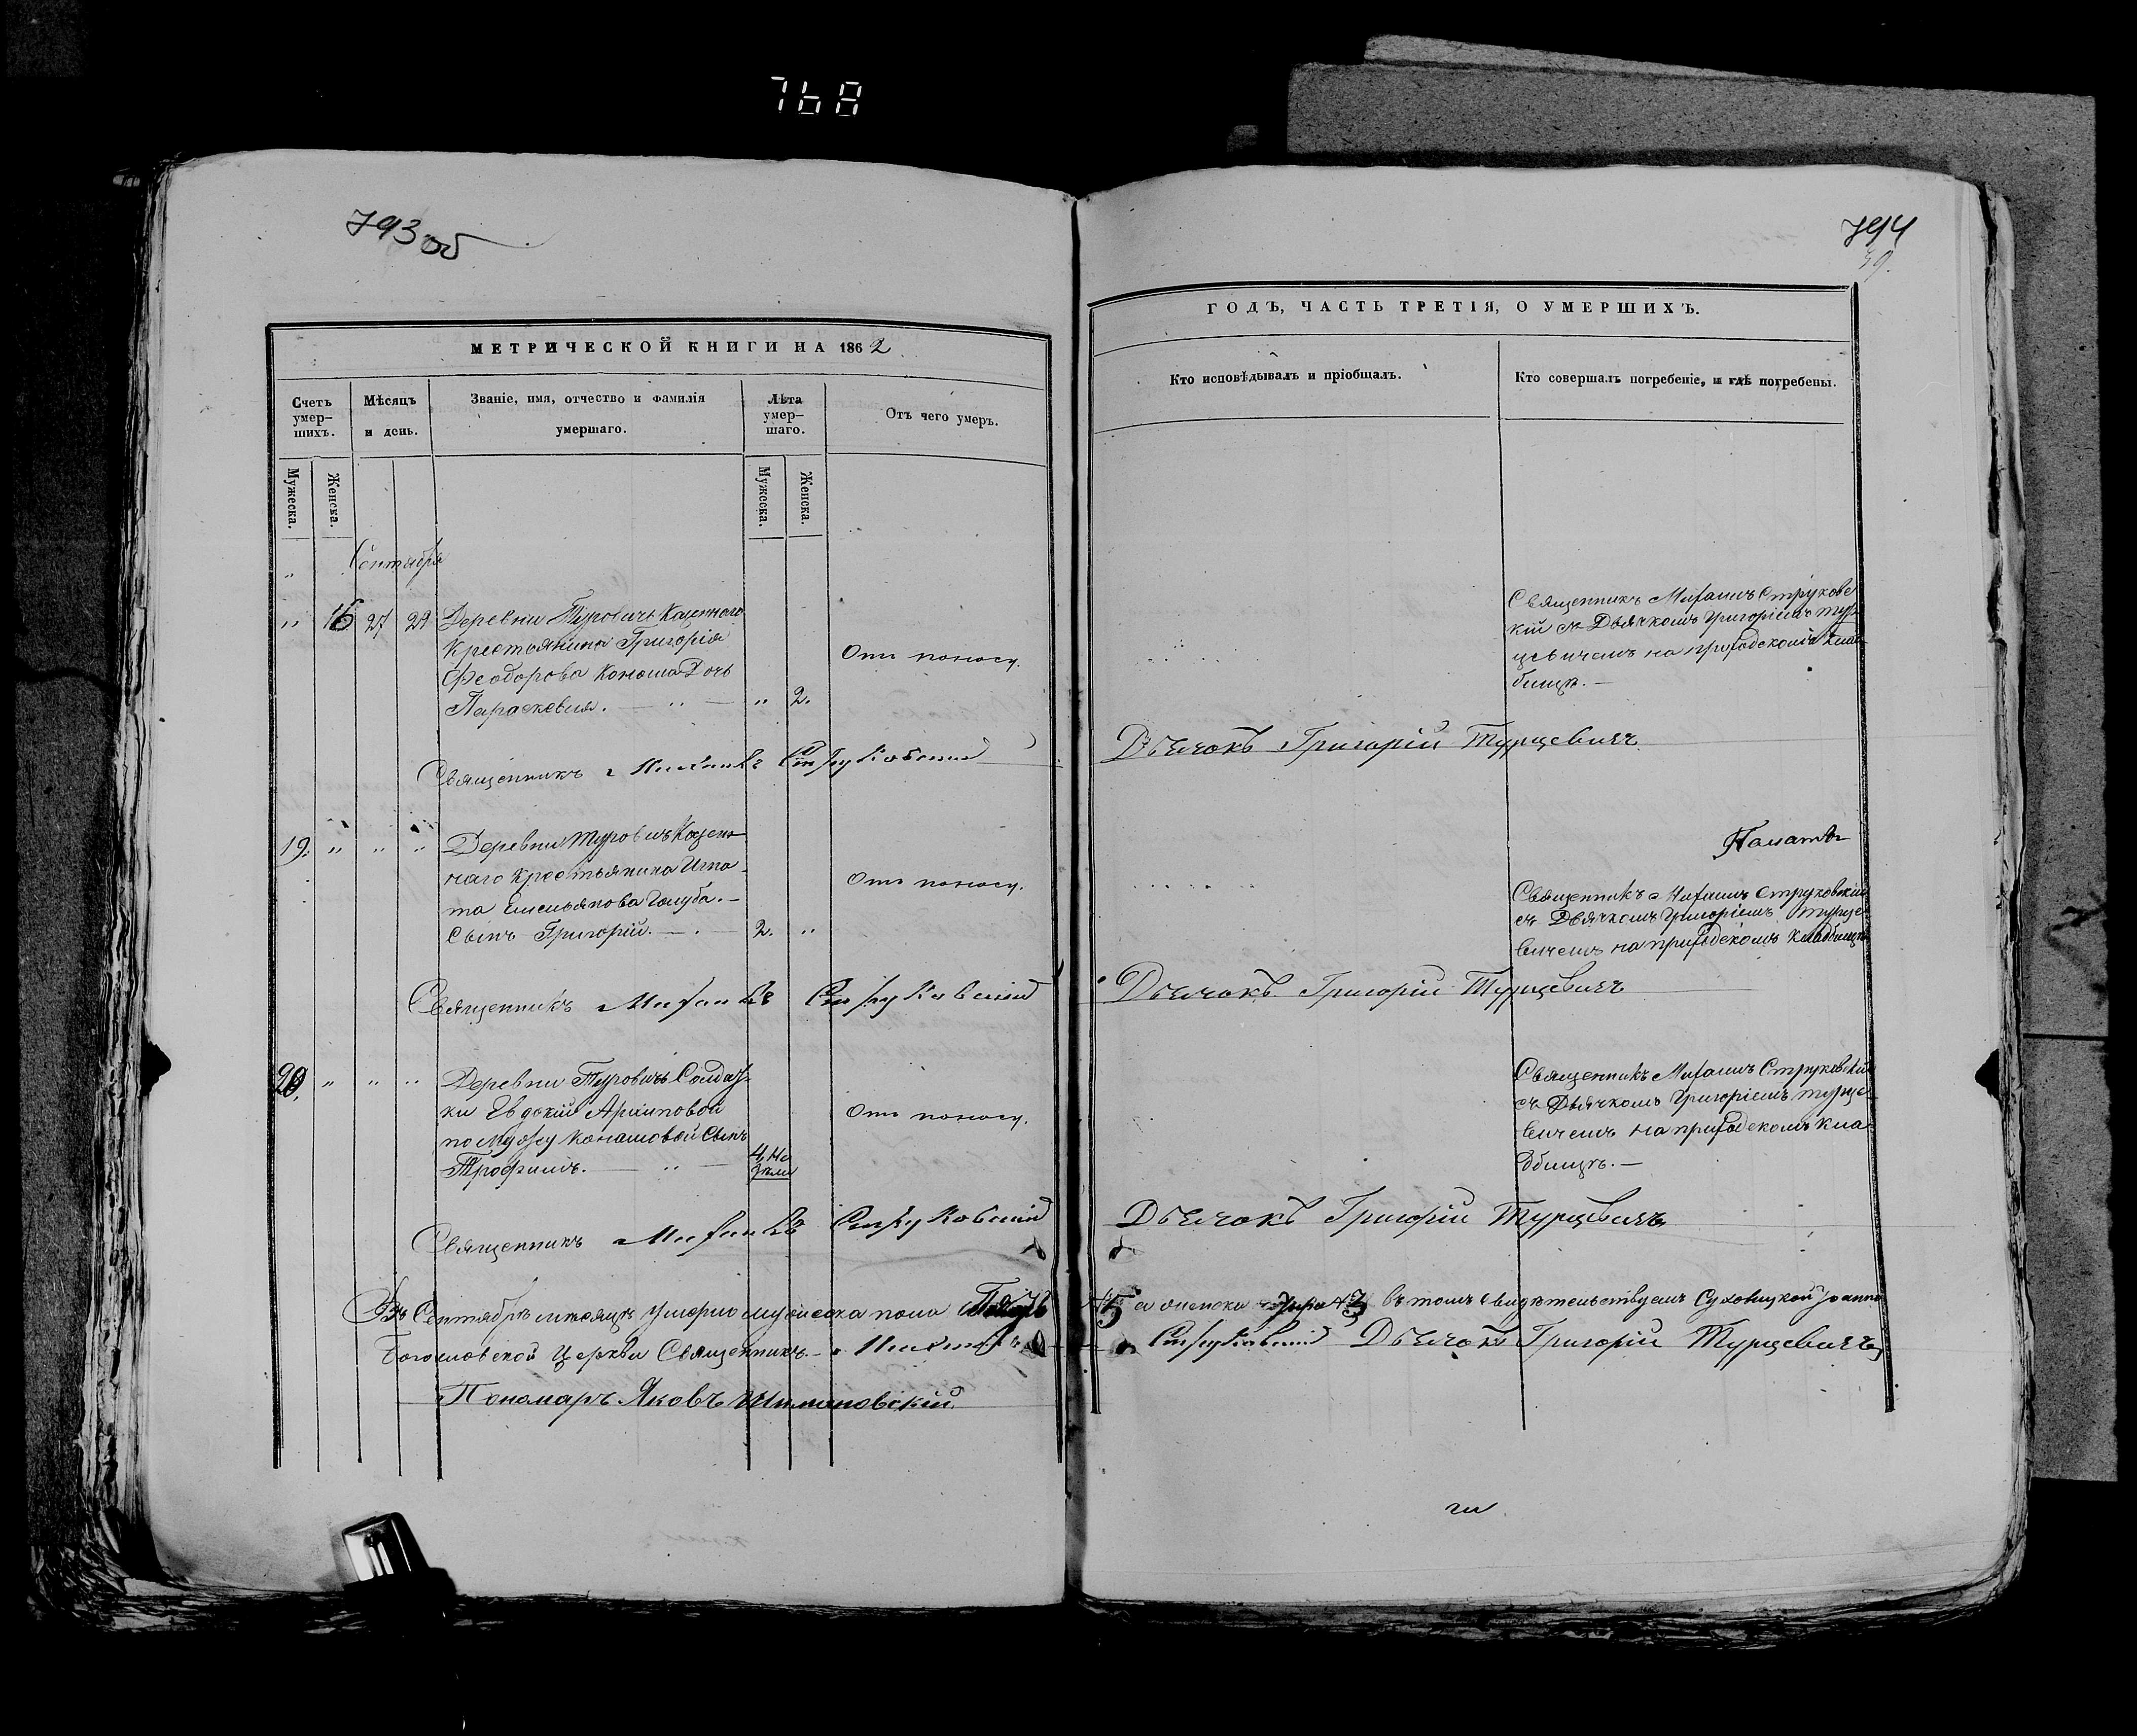 768
793 об
794
39.
МЕТРИЧЕСКОЙ КНИГИ НА 1862
Счетъ умер-
шихъ.
Мѣсяцъ
и день.
Званіе, имя, отчество и фамилія
умершаго.
Лѣта
умер-
шаго.
Отъ чего умеръ.
Мужеска.
Женска.
Мужеска.
Женска.
Сентябрь
" 16 27 29 Деревни Туровичъ Казеннаго
Крестьянина Григорія
Феодорова Конаша Дочь
Параскевія. — " — " 2.
Отъ поносу.
Священникъ Михаилъ Струковскій
19. " " " Деревни Туровичъ Казен-
наго Крестьянина Игна-
та Емельянова Голуба. —
Сынъ Григорій. — 2. "
Отъ поносу.
Священникъ Михаилъ Струковскій
20. " " " Деревни Туровичъ Солдат-
ки Евдокіи Архиповой
по Мужу Конашовой Сынъ
Трофимъ. — " —
Отъ поносу.
Священникъ Михаилъ Струковскій
Въ Сентябрѣ мѣсяцѣ Умерло мужеска пола
Богословской Церкви Священникъ Михаилъ
Пономарь Яковъ Шимановскій
ГОДЪ, ЧАСТЬ ТРЕТІЯ, О УМЕРШИХЪ.
Кто исповѣдывалъ и пріобщалъ.
Кто совершалъ погребеніе, и гдѣ погребены.
Священникъ Михаилъ Струковс-
кій съ Дьячкомъ Григоріемъ Тур-
цевичемъ на приходскомъ клад-
бищѣ. —
Дьячокъ Григорій Турцевичъ
Священникъ Михаилъ Струковскій
съ Дьячкомъ Григоріемъ Турце-
вичемъ на приходскомъ кладбищѣ
Дьячокъ Григорій Турцевичъ
Священникъ Михаилъ Струковскій
съ Дьячкомъ Григоріемъ Турце-
вичемъ на приходскомъ кла-
дбищѣ. —
Дьячокъ Григорій Турцевичъ
5 а женска въ томъ свидѣтельствуемъ Суховицкой Іоанно
Струковскій Дьячокъ Григорій Турцевичъ